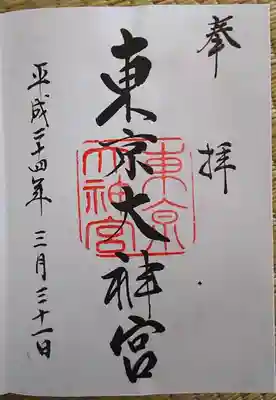 奉拝
東京大神宮
東京
大神宮
平成二十四年三月三十一日